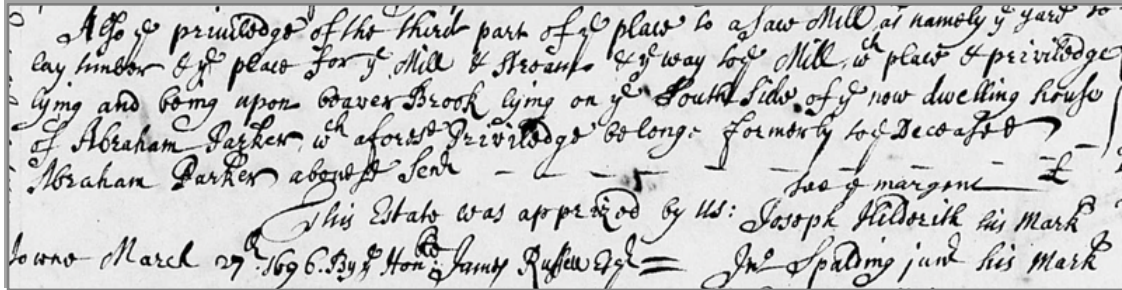 Also ye priviledge of the third part of ye place to a saw Mill, as namely ye yard to
lay timber & ye place for ye Mill & stream & ye way to ye Mill, wch place & priviledge
lying and being upon beaver Brook lying on ye South Side of ye now dwelling house
of Abraham Parker, wch aforesd Priviledge belongs formerly to ye Deceased
Abraham Parker abovesd Senr
see ye margent £
This Estate was apprized by Us: Joseph Hilderith his Mark
towne March 27th. 1696. By ye Honble: James Russell Esqr Jno Spalding junr his Mark